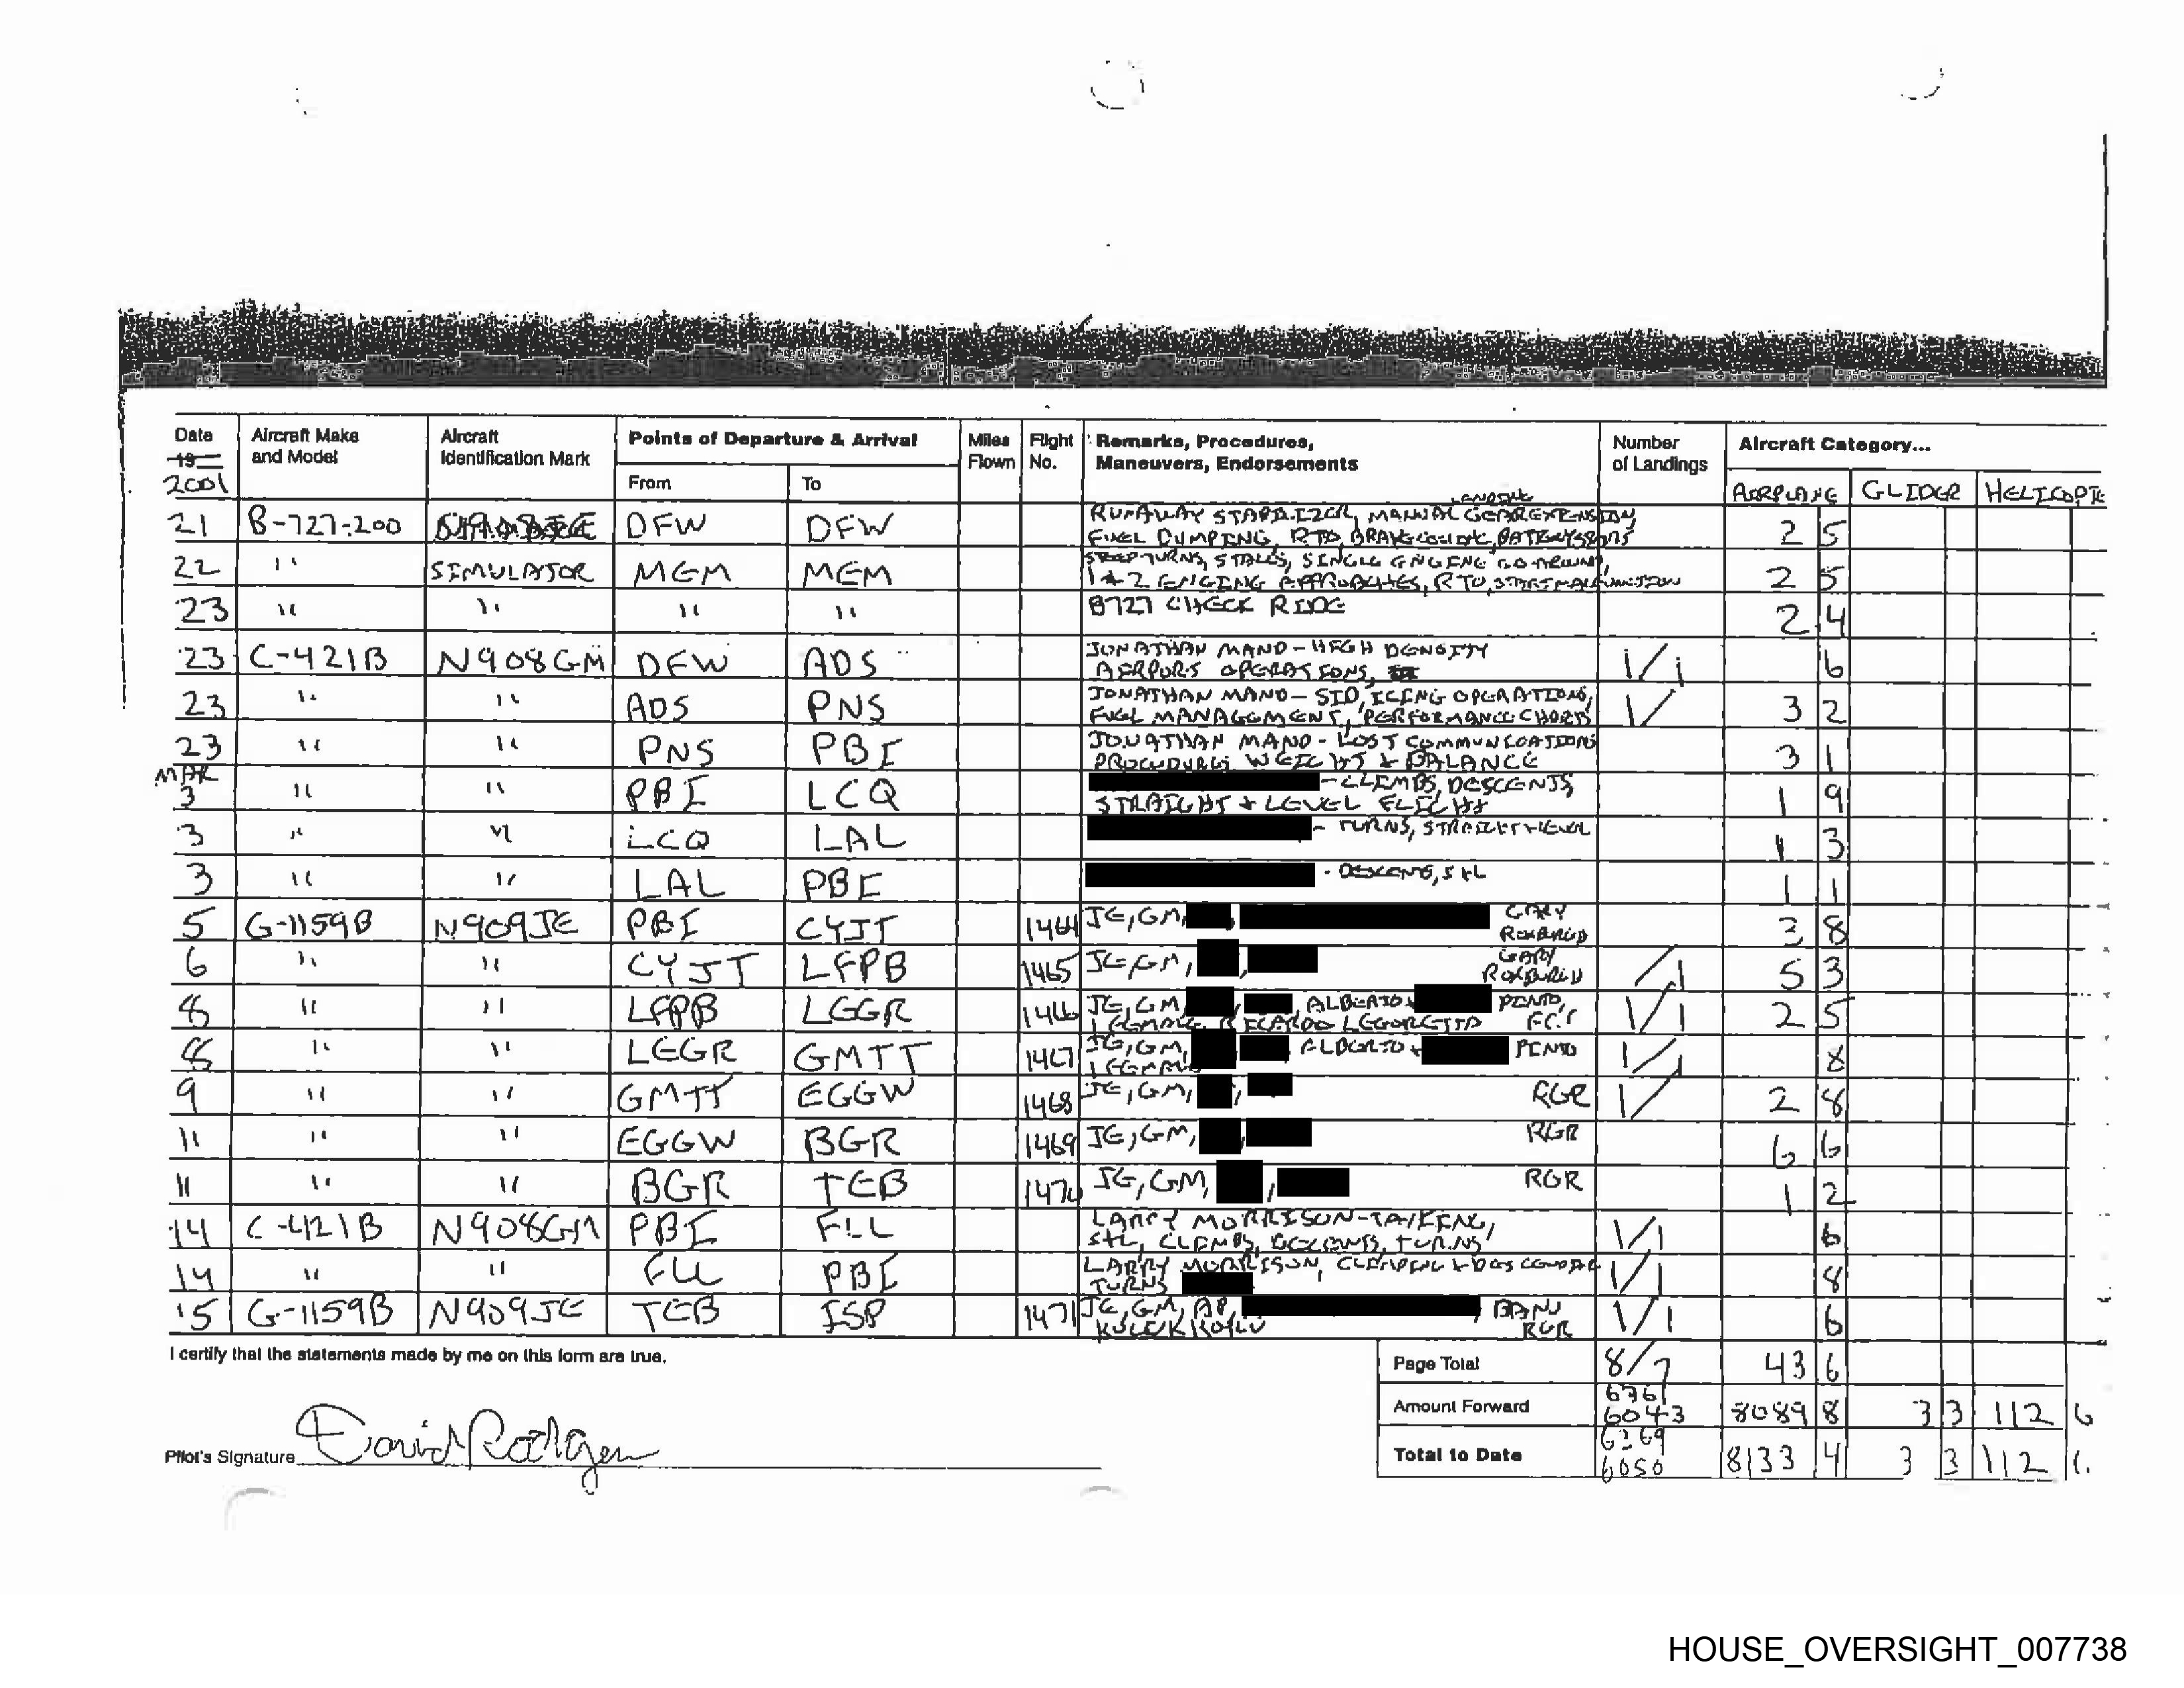 Date Aircraft Make Aircraft Points of Departure & Arrival Miles Flight Remarks, Procedures, Number Aircraft Category...
19 and Model Identification Mark Flown No. Maneuvers, Endorsements of Landings
2001 From To AIRPLANE GLIDER HELICOPTE
LANDING
21 B-727-200 DFW DFW RUNAWAY STABILIZER, MANUAL GEAR EXTENSION, 2 5
FUEL DUMPING, RTO,
22 " SIMULATOR MEM MEM STEEP TURNS, STALLS, SINGLE ENGINE GO AROUND, 2 5
1 & 2 ENGINE APPROACHES, RTO, START MALFUNCTION
23 " " " " B727 CHECK RIDE 2 4
23 C-421B N908GM DFW ADS JONATHAN MANO - HIGH DENSITY 1/1 6
AIRPORT OPERATIONS,
23 " " ADS PNS JONATHAN MANO - SID, ICING OPERATIONS, 1/ 3 2
FUEL MANAGEMENT, PERFORMANCE CHARTS
23 " " PNS PBI JONATHAN MANO - LOST COMMUNICATIONS 3 1
PROCEDURES WEIGHT & BALANCE
MAR
3 " " PBI LCQ - CLIMBS, DESCENTS, 1 9
STRAIGHT & LEVEL FLIGHT
3 " " LCQ LAL - TURNS, STRAIGHT & LEVEL 1 3
3 " " LAL PBI - DESCENTS, S&L 1 1
5 G-1159B N909JE PBI CYJT 1464 JE, GM, GARY 3 8
ROXBURGH
6 " " CYJT LFPB 1465 JE, GM, GARY /1 5 3
ROXBURGH
8 " " LFPB LEGR 1466 JE, GM, ALBERTO & PINTO, 1/1 2 5
1 FEMALE, RICARDO LEGORETTA
8 " " LEGR GMTT 1467 JE, GM, ALBERTO & PINTO 1/1 8
1 FEMALE
9 " " GMTT EGGW 1468 JE, GM, RGR 1/ 2 8
11 " " EGGW BGR 1469 JE, GM, RGR 6 6
11 " " BGR TEB 1470 JE, GM, RGR 1 2
14 C-421B N908GM PBI FLL LARRY MORRISON - TAXIING, 1/1 6
S&L, CLIMBS, DESCENTS, TURNS
14 " " FLL PBI LARRY MORRISON, CLIMBING & DESCENDING 1/1 8
TURNS
15 G-1159B N909JE TEB ISP 1471 JE, GM, AP, BANU 1/1 6
KUCUKKOYLU RGR
I certify that the statements made by me on this form are true.
Page Total 8/7 43 6
Amount Forward 6043 8089 8 3 3 112 6
Pilot's Signature David Rodgers
Total to Date 6050 8133 4 3 3 112
HOUSE_OVERSIGHT_007738